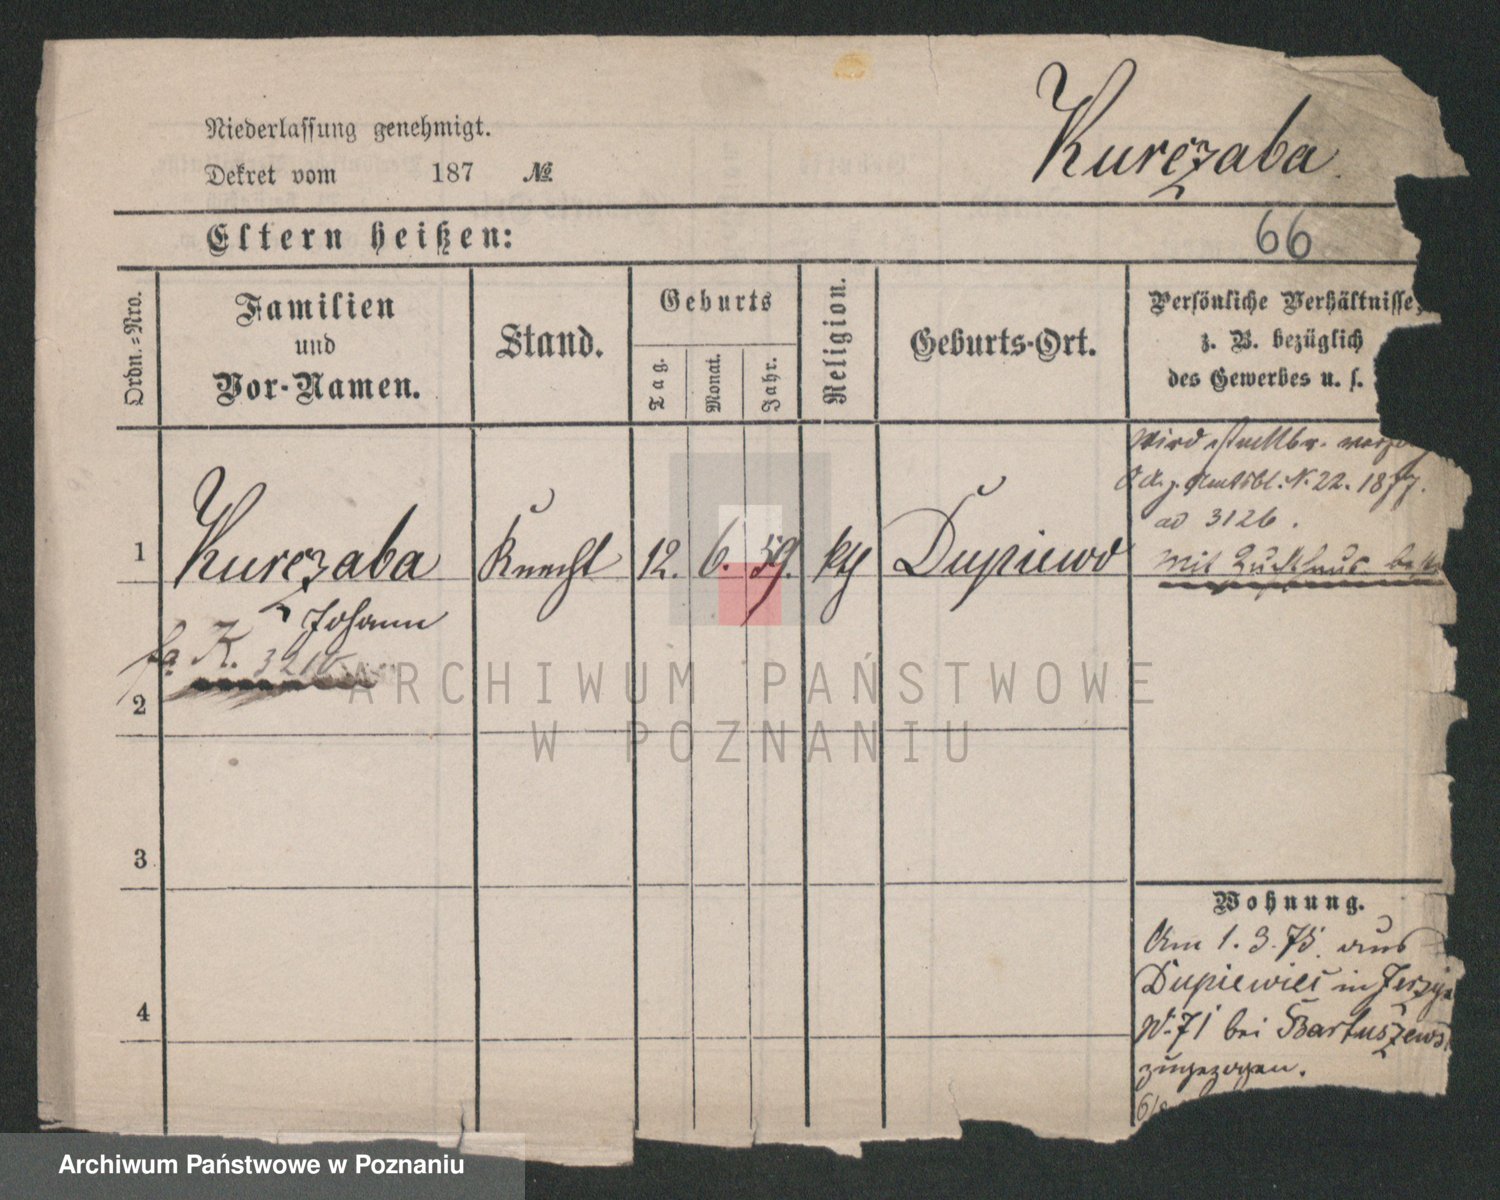 Kurczaba
Niederlassung genehmigt.
Dekret vom 187 №
Eltern heißen:
66
Ordn.-Nro.
Familien
und
Vor-Namen.
Stand.
Geburts
Tag.
Monat.
Jahr.
Religion.
Geburts-Ort.
Persönliche Verhältnisse,
z. B. bezüglich
des Gewerbes u. s.
Wird
Amtsbl. N. 22. 1877.
ad 3126.
mit Zuchthaus
1 Kurczaba Knecht 12. 6. 59. kth Dupiewo
Johann
K. 3216
2
3
4
Wohnung.
Am 1. 3. 75. aus
Dupiewiec in
N. 71 bei
zugezogen.
ARCHIWUM PAŃSTWOWE
W POZNANIU
Archiwum Państwowe w Poznaniu